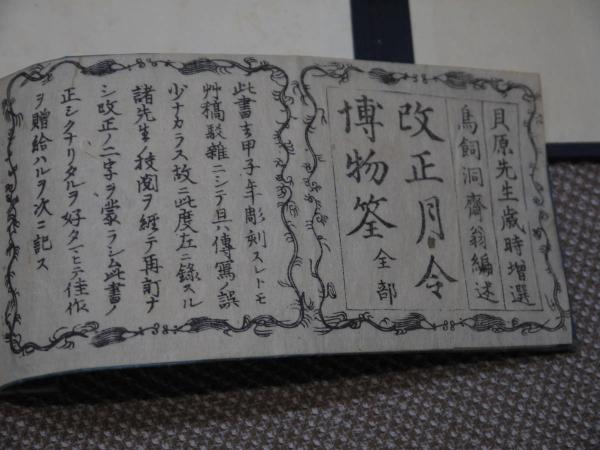 貝原先生歳時増選
鳥飼洞齋翁編述
改正月令
博物筌 全部
此書去甲子年彫刻スレトモ
艸稿駁雜ニシテ且ツ傳寫ノ誤
少ナカラス故ニ此度左ニ錄スル
諸先生ノ校閲ヲ經テ再訂ナ
シ改正ノ二字ヲ蒙ラシム此書ノ
正シクナリタルヲ好タマヒテ佳作
ヲ贈給ハルヲ次ニ記ス